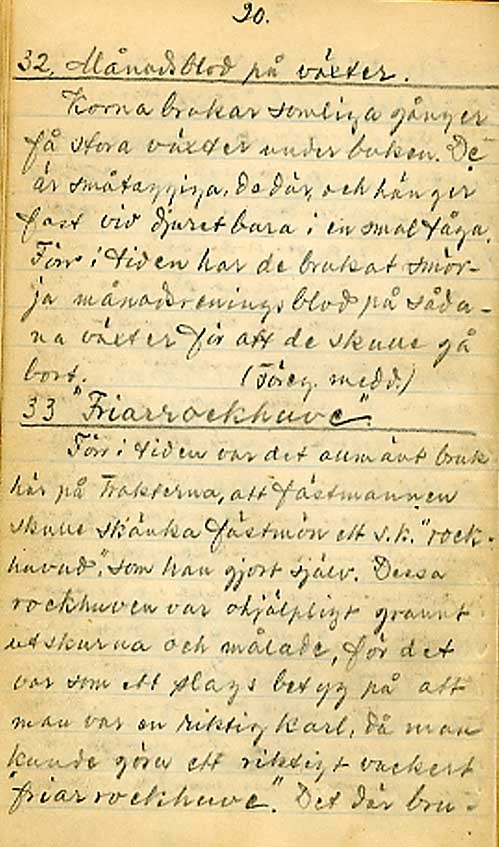 20.
32. Månadsblod på växter.
Korna brukar somliga gånger
få stora växter under buken. De
är småtaggiga, de där, och hänger
fast vid djuret bara i en smal tåga.
Förr i tiden har de brukat smör-
ja månadsreningsblod på såda-
na växter för att de skulle gå
bort. (Föreg. medd.)
33 "Friarrockhuve".
Förr i tiden var det allmänt bruk
här på trakterna, att fästmannen
skulle skänka fästmön ett s.k. "rock-
huvud", som han gjort själv. Dessa
rockhuven var ohjälpligt grannt
utskurna och målade, för det
var som ett slags betyg på att
man var en riktig karl, då man
kunde göra ett riktigt vackert
"friarrockhuve". Det där bru-